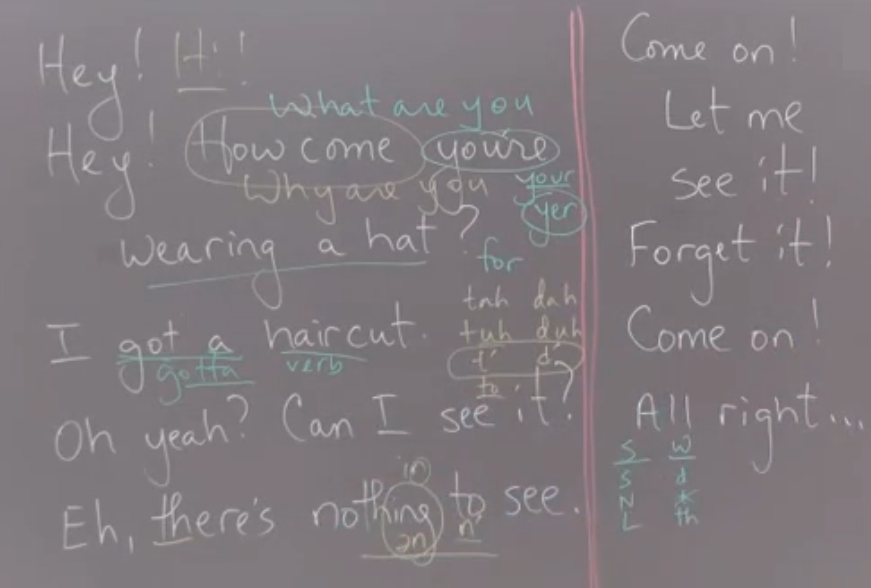 Hey! Hi!
What are you
Hey! How come you're
Why are you your
yer
wearing a hat?
for
tah dah
tuh duh
t' d'
to
I got a haircut.
gotta verb
Oh yeah? Can I see it?
in
Eh, there's nothing to see.
ən n'
Come on!
Let me
see it!
Forget it!
Come on!
All right...
S W
S d
N *
L th